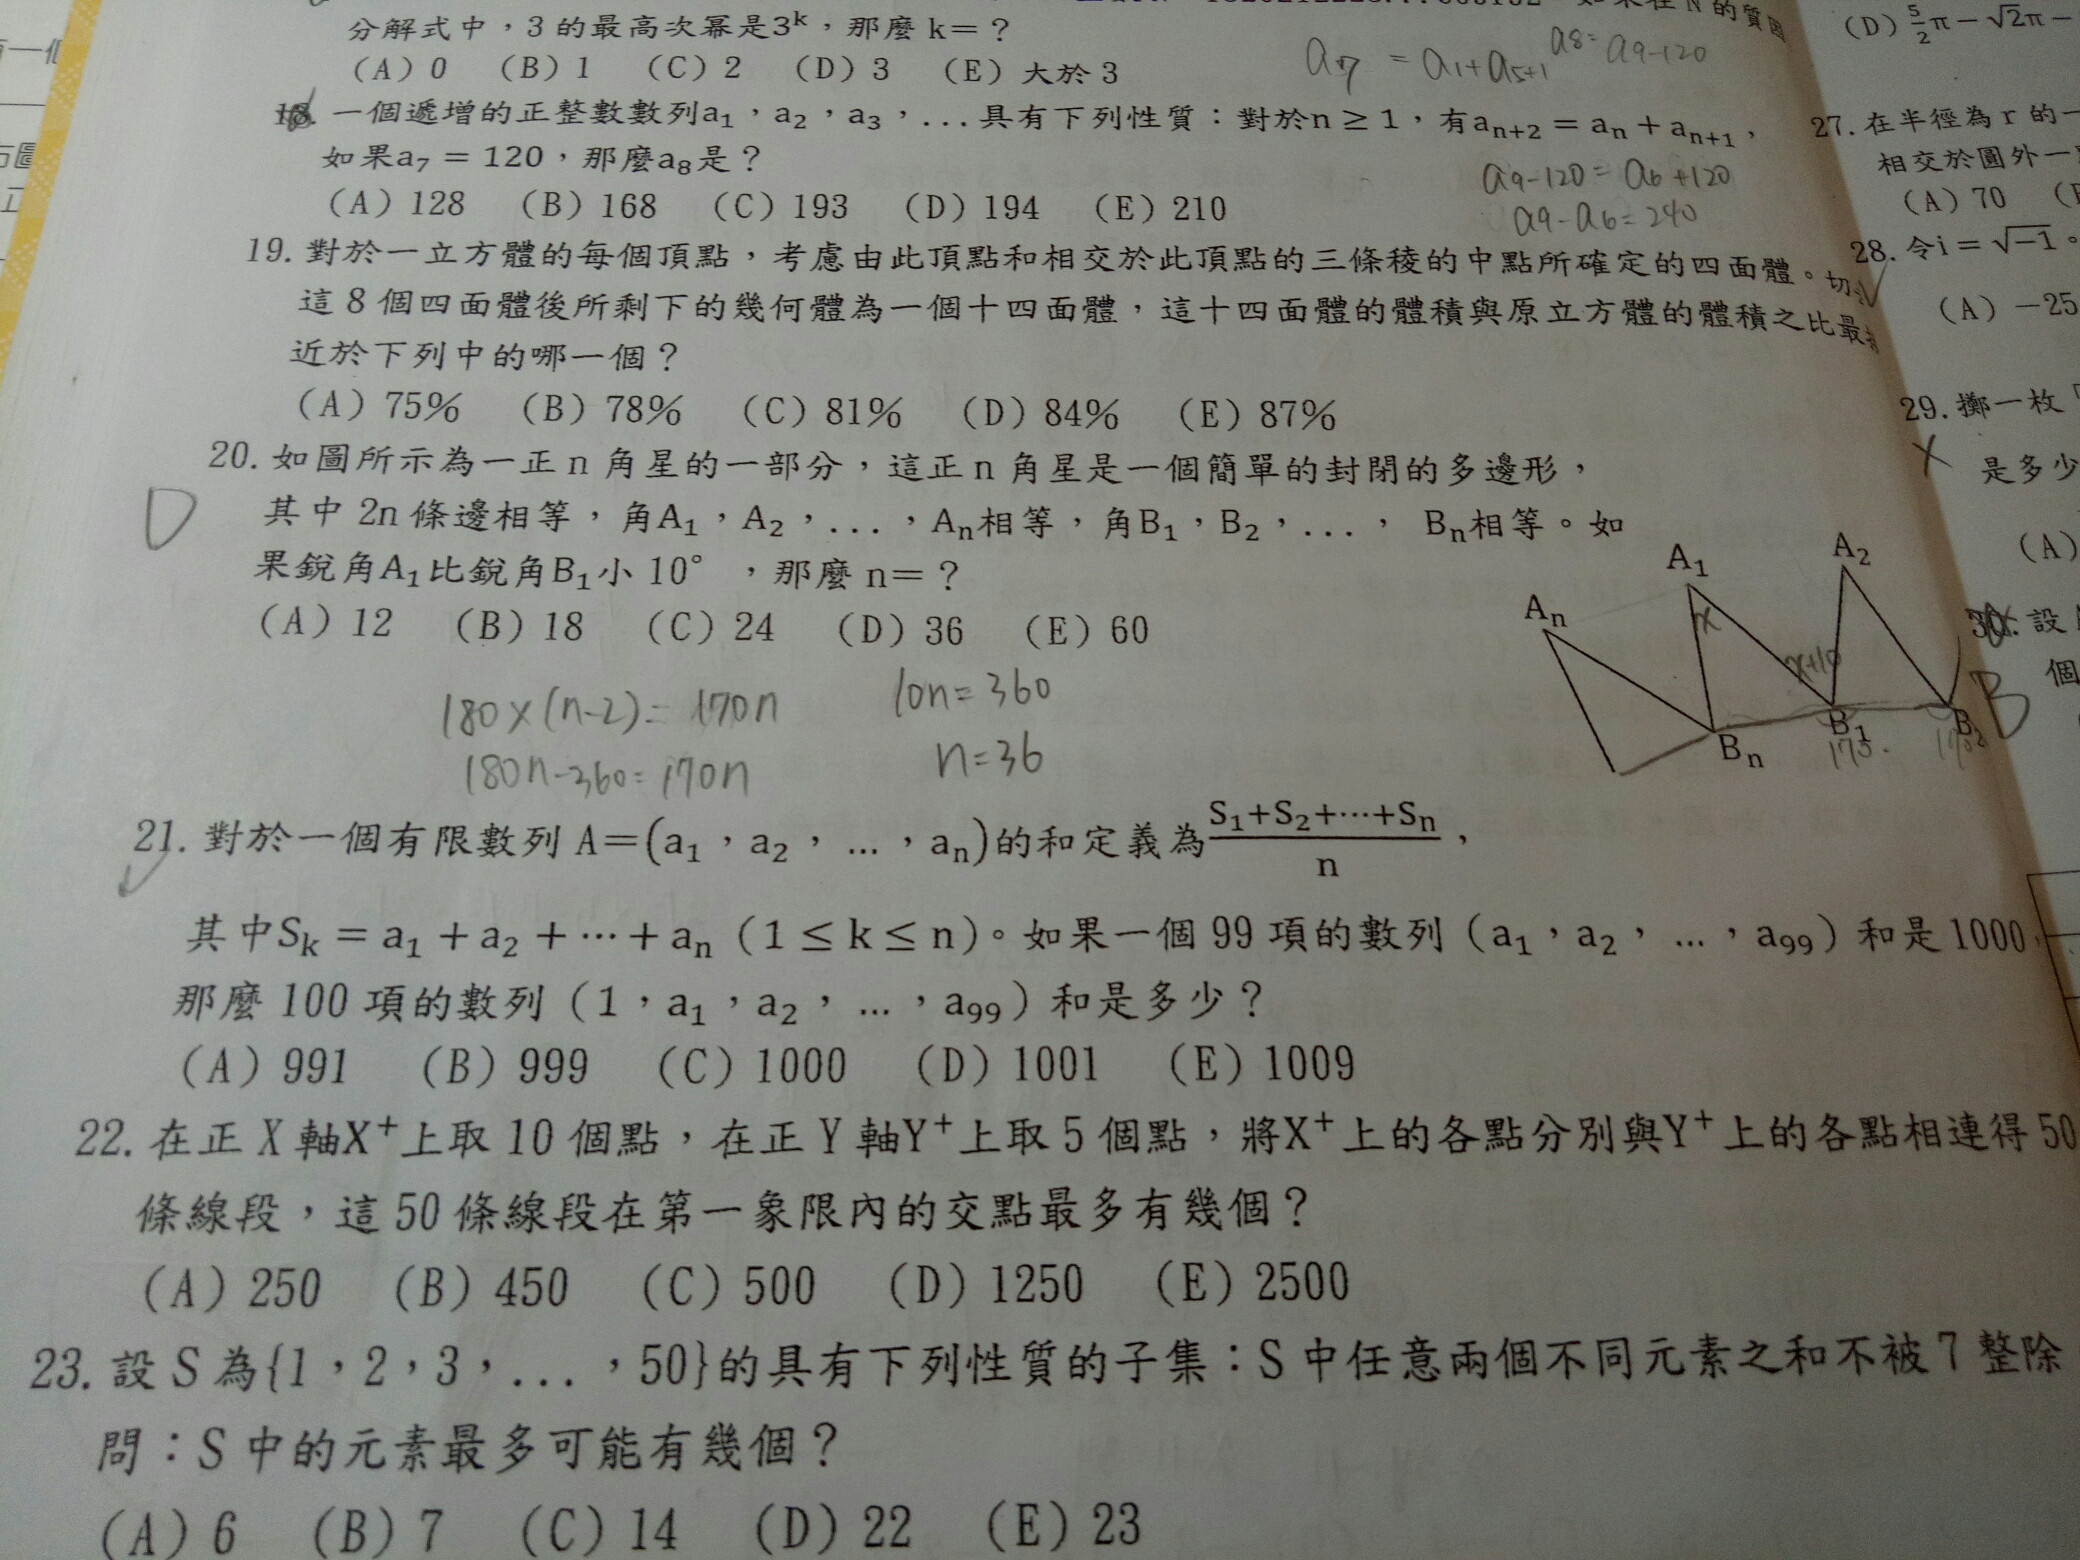 分解式中，3的最高次冪是3^k，那麼k=？
(A) 0 (B) 1 (C) 2 (D) 3 (E) 大於3
a7 = a1+a5+1 a8=a9-120
18. 一個遞增的正整數數列a₁，a₂，a₃，...具有下列性質：對於n ≥ 1，有aₙ₊₂ = aₙ + aₙ₊₁，
如果a₇ = 120，那麼a₈是？
a9-120=a6+120
(A) 128 (B) 168 (C) 193 (D) 194 (E) 210
a9-a6=240
19. 對於一立方體的每個頂點，考慮由此頂點和相交於此頂點的三條稜的中點所確定的四面體。切
這8個四面體後所剩下的幾何體為一個十四面體，這十四面體的體積與原立方體的體積之比最
近於下列中的哪一個？
(A) 75% (B) 78% (C) 81% (D) 84% (E) 87%
20. 如圖所示為一正n角星的一部分，這正n角星是一個簡單的封閉的多邊形，
D
其中2n條邊相等，角A₁，A₂，...，Aₙ相等，角B₁，B₂，...， Bₙ相等。如
果銳角A₁比銳角B₁小10°，那麼n=？
(A) 12 (B) 18 (C) 24 (D) 36 (E) 60
Aₙ A₁ A₂
x x+10
Bₙ B₁ B₂
180×(n-2)=170n
10n=360
180n-360=170n
n=36
21. 對於一個有限數列A=(a₁，a₂，…，aₙ)的和定義為(S₁+S₂+⋯+Sₙ)/n，
其中Sₖ = a₁ + a₂ + ⋯ + aₙ (1 ≤ k ≤ n)。如果一個99項的數列(a₁，a₂，…，a₉₉)和是1000，
那麼100項的數列(1，a₁，a₂，…，a₉₉)和是多少？
(A) 991 (B) 999 (C) 1000 (D) 1001 (E) 1009
22. 在正X軸X⁺上取10個點，在正Y軸Y⁺上取5個點，將X⁺上的各點分別與Y⁺上的各點相連得50
條線段，這50條線段在第一象限內的交點最多有幾個？
(A) 250 (B) 450 (C) 500 (D) 1250 (E) 2500
23. 設S為{1，2，3，...，50}的具有下列性質的子集：S中任意兩個不同元素之和不被7整除
問：S中的元素最多可能有幾個？
(A) 6 (B) 7 (C) 14 (D) 22 (E) 23
(D) 5/2π-√2π-
27. 在半徑為r的一
相交於圓外一
(A) 70
28. 令i = √-1。
(A) -25
29. 擲一枚
是多少
(A)
30. 設
B
個